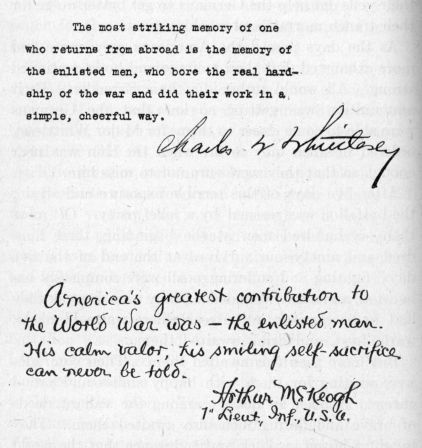 The most striking memory of one
who returns from abroad is the memory of
the enlisted men, who bore the real hard-
ship of the war and did their work in a
simple, cheerful way.
Charles W Whittlesey
America's greatest contribution to
the World War was — the enlisted man.
His calm valor, his smiling self-sacrifice
can never be told.
Arthur McKeogh
1st Lieut, Inf, U.S.A.